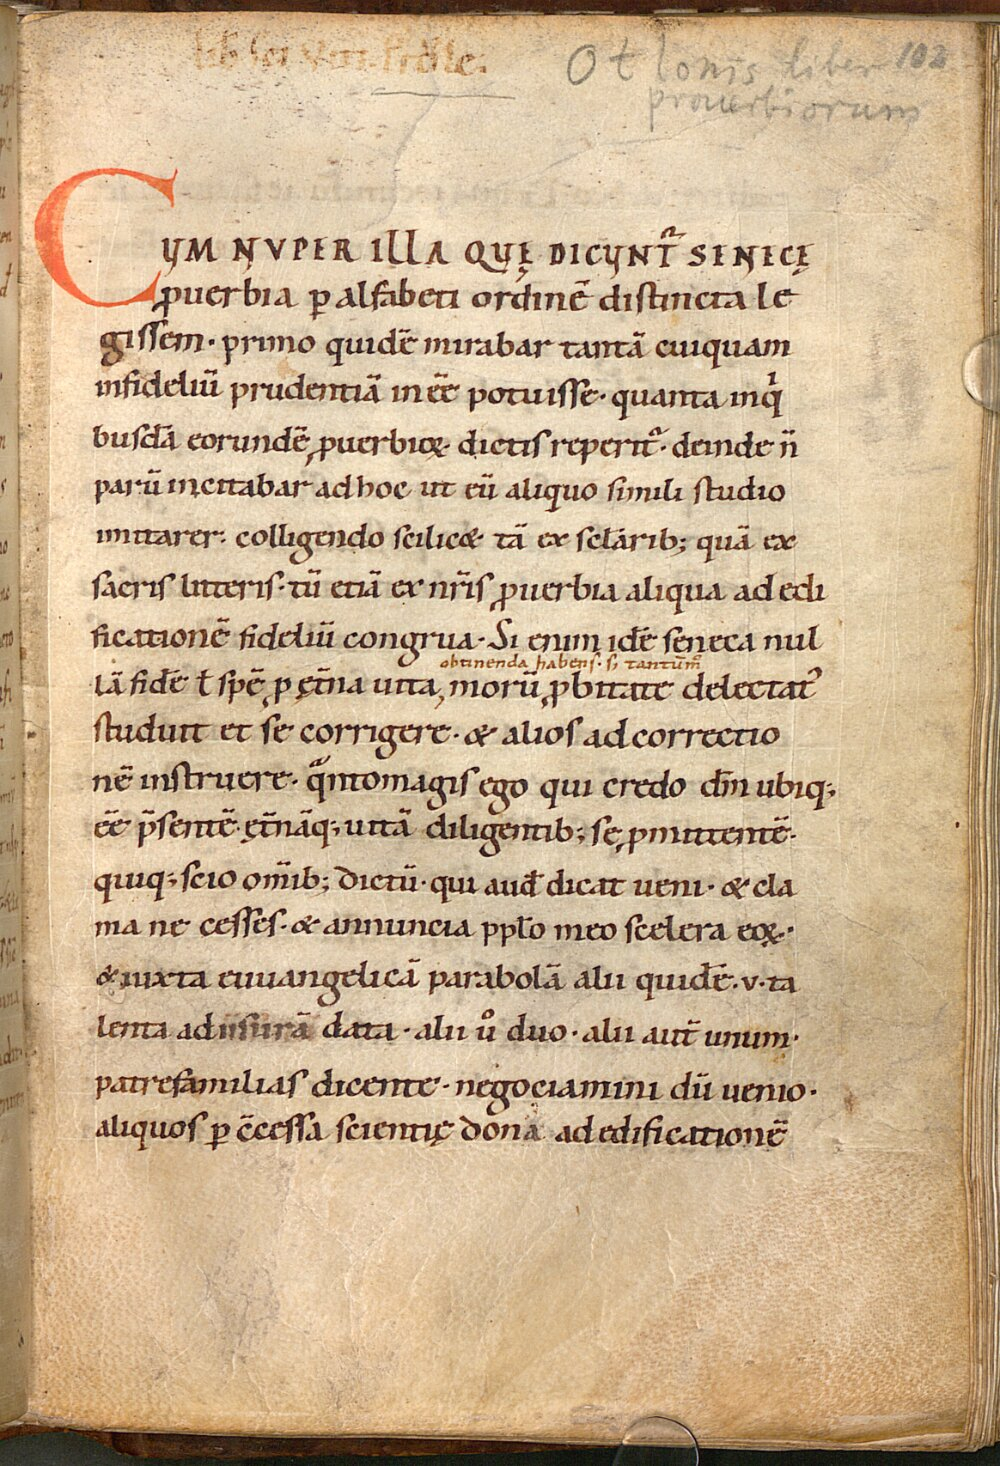 Otlonis liber 102
prouerbiorum
CUM NVPER ILLA QUĘ DICUNT᷑ SENECĘ
ꝓuerbia ꝑ alfabeti ordinē distincta le
gissem· primo quidē mirabar tantā cuiquam
infideliū prudentiā inēe potuisse· quanta inqͥ
busdā eorundē ꝓuerbioꝝ dictis reperit᷑· deinde n̄
parū incitabar adhoc ut eū aliquo simili studio
imitarer: colligendo scilic& tā ex sclārib; quā ex
sacris litteris· tū etiā ex nr̄is ꝓuerbia aliqua ad edi
ficationē fideliū congrua· Si enim idē seneca nul
obtinenda habens· s; tantūm
lā fidē ł spē ꝓ ęt̄na uita, morū ꝓbitate delectat᷑
studuit et se corrigere· & alios ad correctio
nē instruere· qͣntomagis ego qui credo dm̄ ubiq;
ēe p̄sentē· ęt̄nāq; uitā diligentib; sę ꝓmittentē·
quiq; scio om̄ib; dictū· qui aud̄ dicat ueni· & cla
ma ne cesses· & annuncia pplo meo scelera eoꝝ·
& iuxta euuangelicā parabolā alii quidē ·v· ta
lenta ad usurā data· alii uͦ duo· alii aut̄ unum·
patrefamilias dicente· negociamini dū uenio·
aliquos ꝑ c̄cessa scientię dona ad edificationē